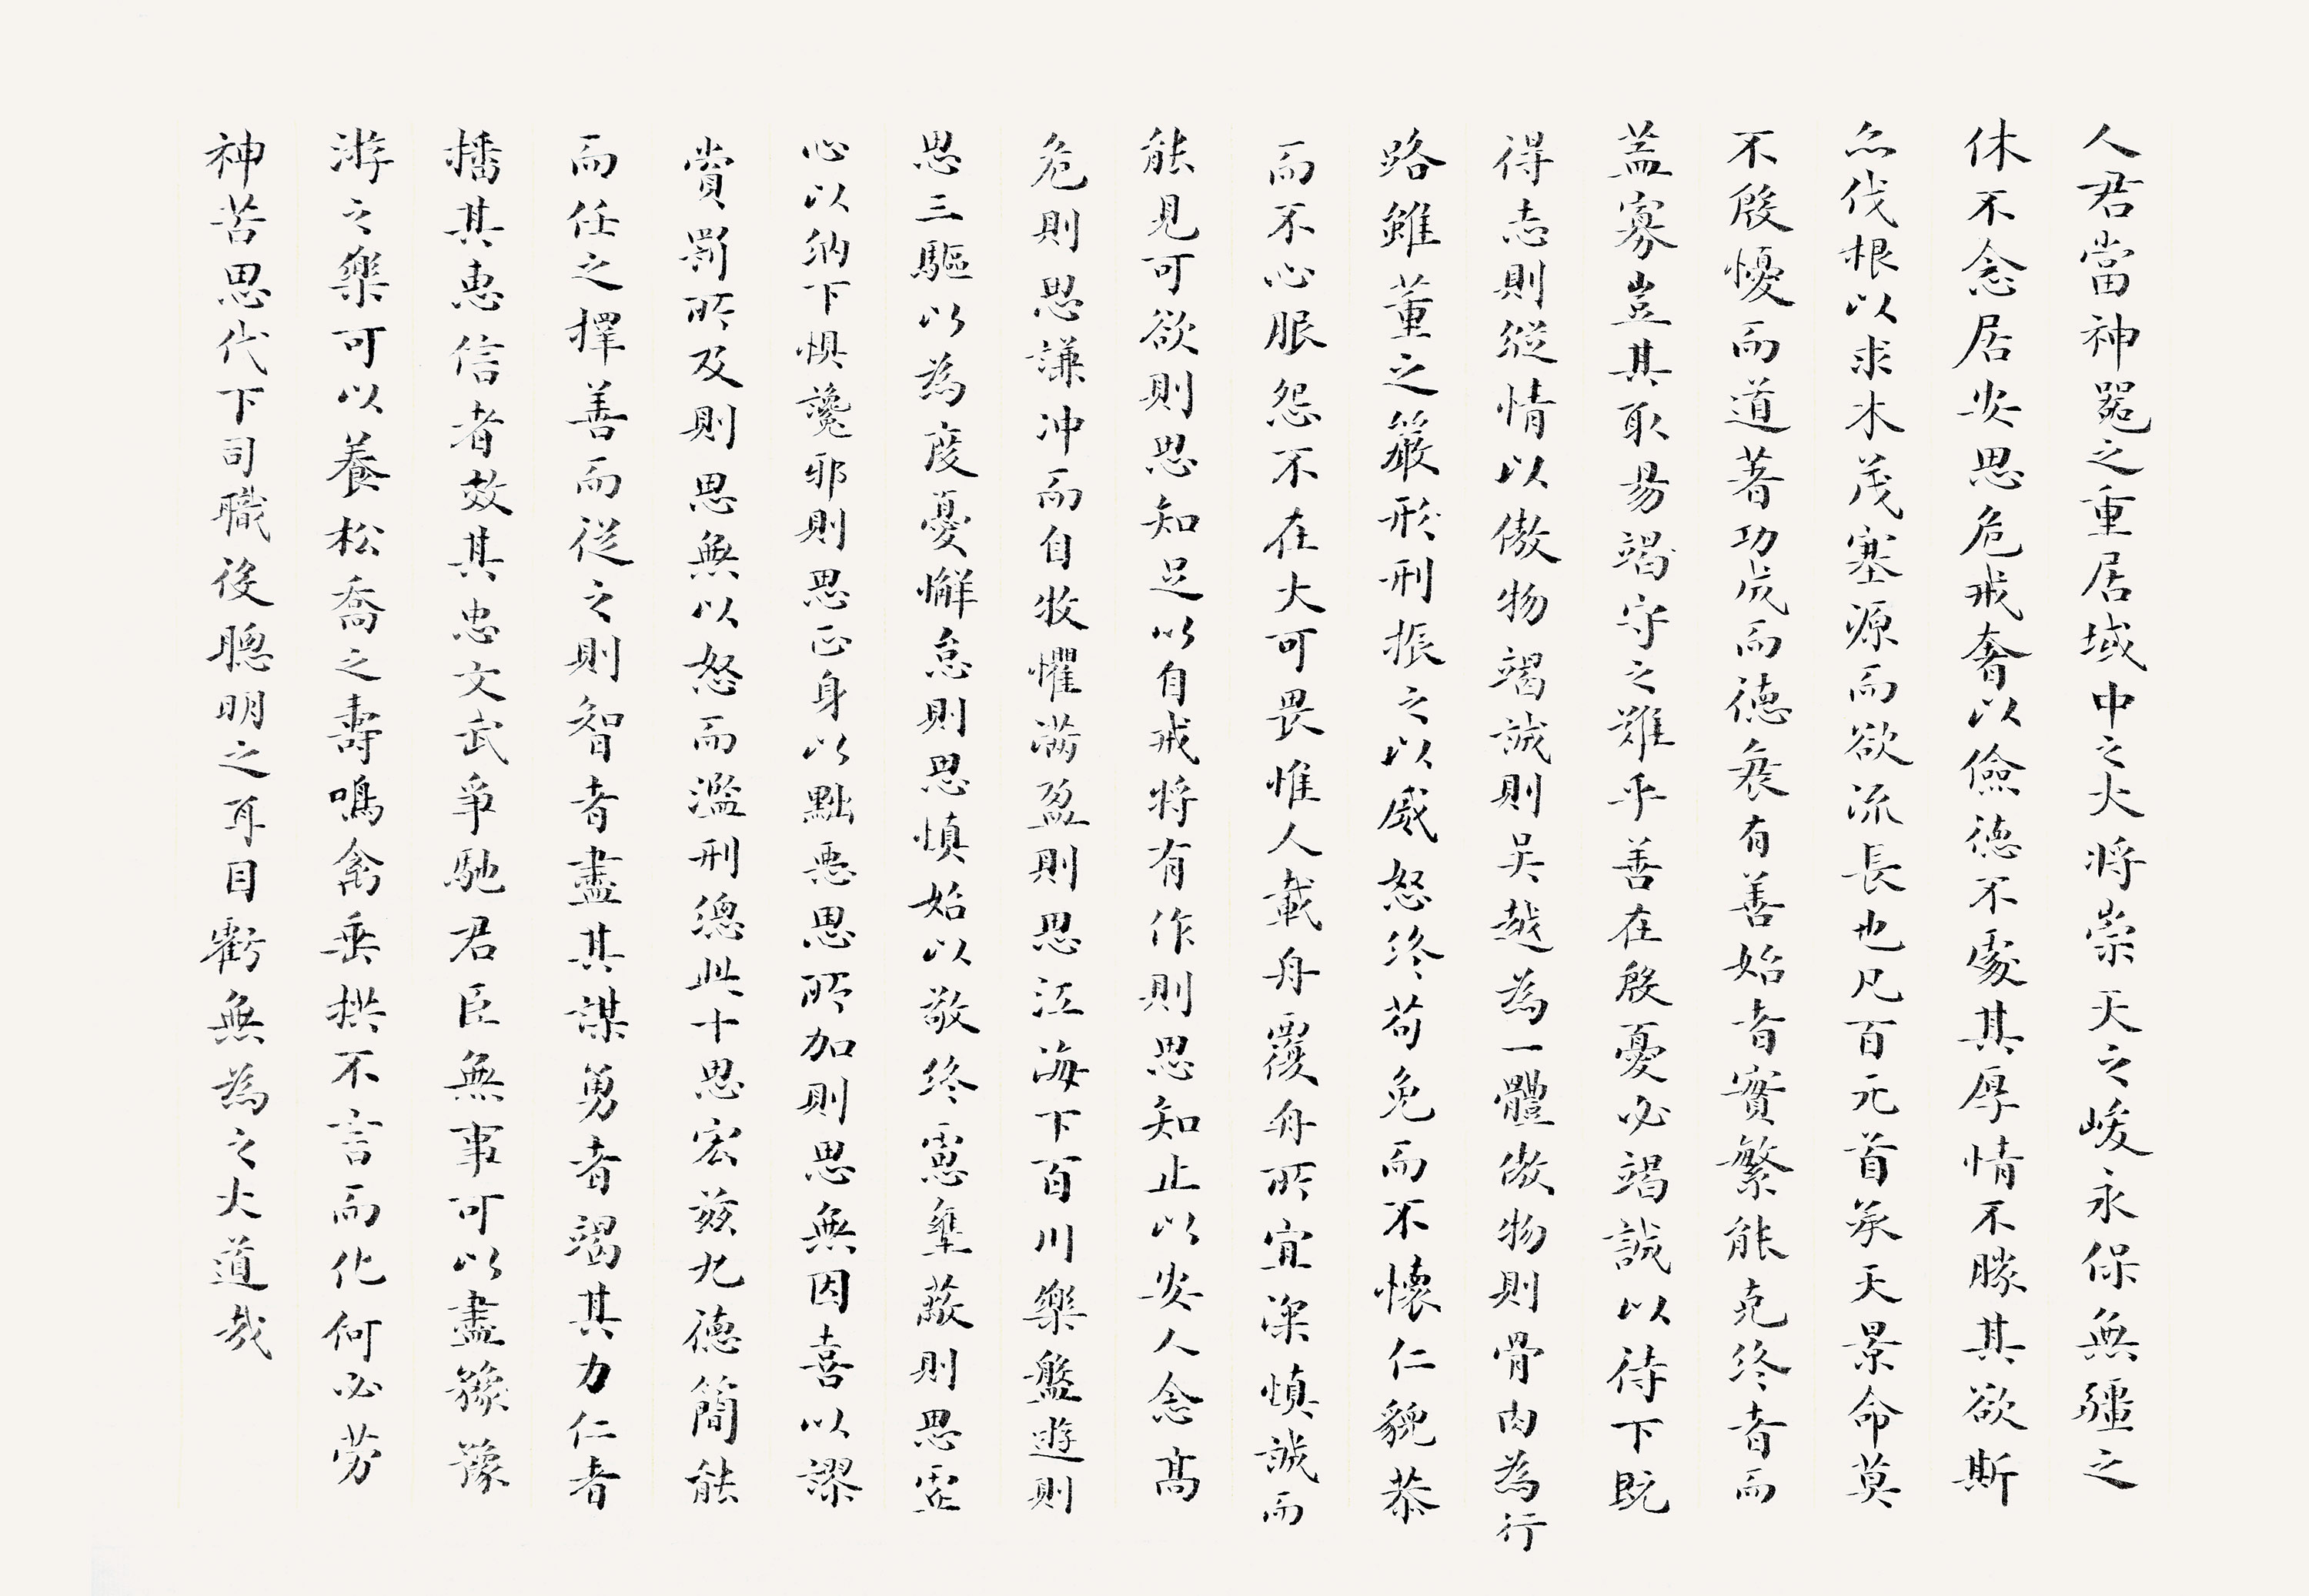 人君當神器之重居域中之大將崇天之峻永保無疆之
休不念居安思危戒奢以儉德不處其厚情不勝其欲斯
亦伐根以求木茂塞源而欲流長也凡百元首承天景命莫
不殷憂而道著功成而德衰有善始者實繁能克終者而
蓋寡豈其取易竭守之難乎善在殷憂必竭誠以待下既
得志則縱情以傲物竭誠則吴越為一體傲物則骨肉為行
路雖董之嚴形刑振之以威怒終苟免而不懷仁貌恭
而不心服怨不在大可畏惟人載舟覆舟所宜深慎誠而
能見可欲則思知足以自戒將有作則思知止以安人念高
危則思謙沖而自牧懼滿盈則思江海下百川樂盤遊則
思三驅以為度憂懈怠則思慎始以敬終慮壅蔽則思虛
心以納下懼讒邪則思正身以黜惡恩所加則思無因喜以謬
賞罰所及則思無以怒而濫刑總此十思宏茲九德簡能
而任之擇善而從之則智者盡其謀勇者竭其力仁者
播其惠信者效其忠文武爭馳君臣無事可以盡豫豫
游之樂可以養松喬之壽鳴禽垂拱不言而化何必勞
神苦思代下司職後聰明之耳目虧無為之大道哉